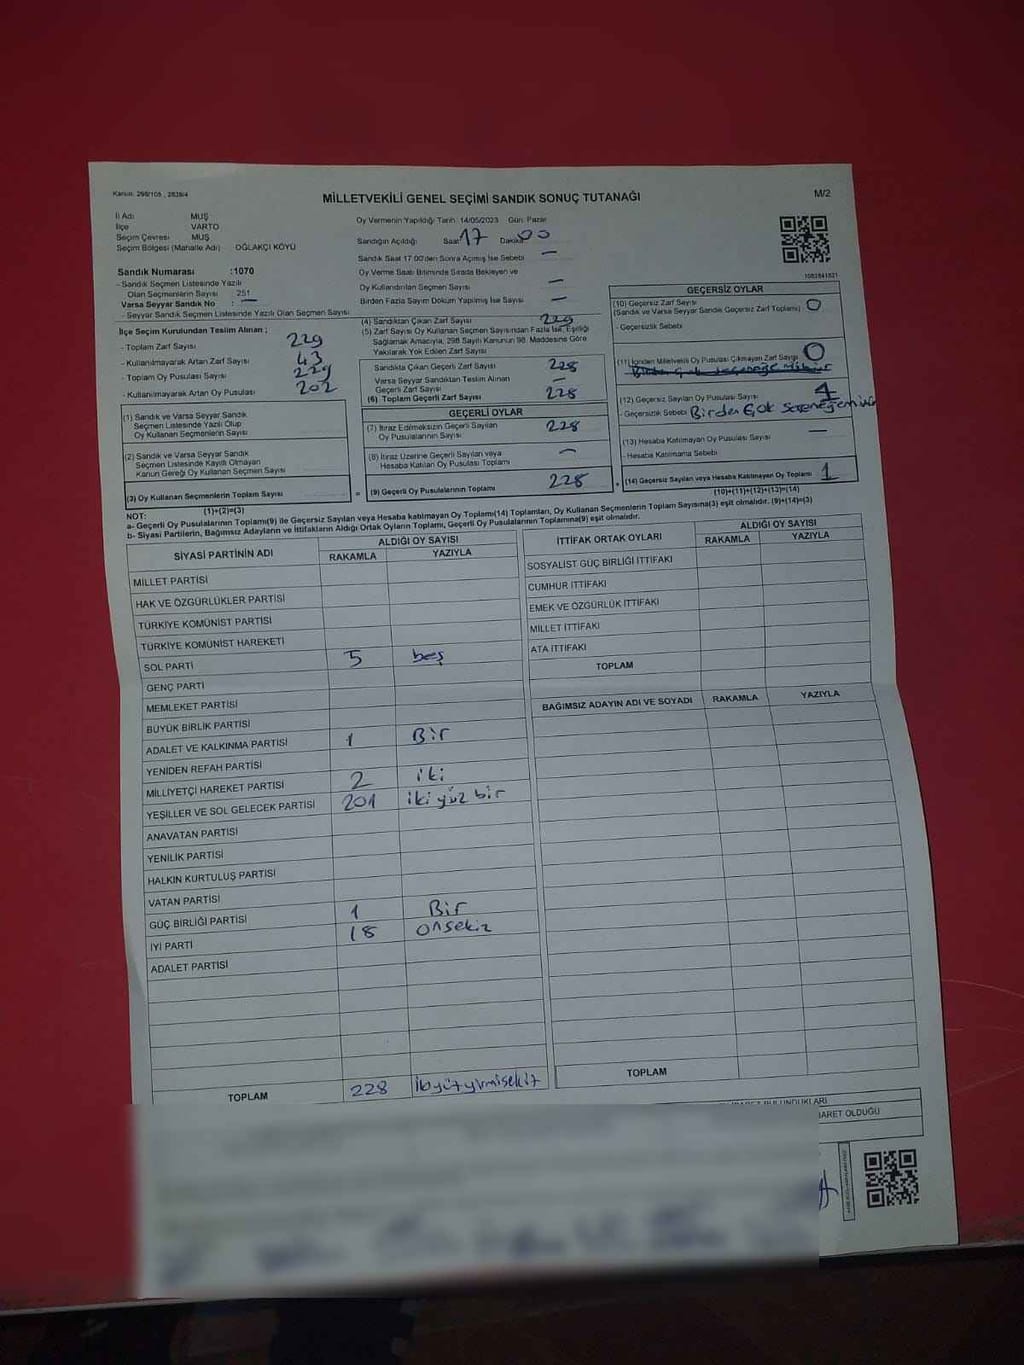 Kanun: 298/105 , 2839/4
MİLLETVEKİLİ GENEL SEÇİMİ SANDIK SONUÇ TUTANAĞI
M/2
İl Adı MUŞ
İlçe VARTO
Seçim Çevresi MUŞ
Seçim Bölgesi (Mahalle Adı) OĞLAKÇI KÖYÜ
Oy Vermenin Yapıldığı Tarih 14/05/2023 Gün: Pazar
Sandığın Açıldığı Saat 17 Dakika 00
Sandık Saat 17:00'den Sonra Açılmış İse Sebebi —
Oy Verme Saati Bitiminde Sırada Bekleyen ve
Oy Kullandırılan Seçmen Sayısı —
Birden Fazla Sayım Döküm Yapılmış İse Sayısı —
Sandık Numarası :1070
- Sandık Seçmen Listesinde Yazılı
Olan Seçmenlerin Sayısı 251
Varsa Seyyar Sandık No : —
- Seyyar Sandık Seçmen Listesinde Yazılı Olan Seçmen Sayısı
İlçe Seçim Kurulundan Teslim Alınan ;
- Toplam Zarf Sayısı 229
- Kullanılmayarak Artan Zarf Sayısı 43
- Toplam Oy Pusulası Sayısı 229
- Kullanılmayarak Artan Oy Pusulası 202
(1) Sandık ve Varsa Seyyar Sandık
Seçmen Listesinde Yazılı Olup
Oy Kullanan Seçmenlerin Sayısı
(2) Sandık ve Varsa Seyyar Sandık
Seçmen Listesinde Kayıtlı Olmayan
Kanun Gereği Oy Kullanan Seçmen Sayısı
(3) Oy Kullanan Seçmenlerin Toplam Sayısı
(1)+(2)=(3)
(4) Sandıktan Çıkan Zarf Sayısı 229
(5) Zarf Sayısı Oy Kullanan Seçmen Sayısından Fazla İse, Eşitliği
Sağlamak Amacıyla, 298 Sayılı Kanunun 98. Maddesine Göre
Yakılarak Yok Edilen Zarf Sayısı
Sandıkta Çıkan Geçerli Zarf Sayısı 228
Varsa Seyyar Sandıktan Teslim Alınan
Geçerli Zarf Sayısı —
(6) Toplam Geçerli Zarf Sayısı 228
GEÇERLİ OYLAR
(7) İtiraz Edilmeksizin Geçerli Sayılan
Oy Pusulalarının Sayısı 228
(8) İtiraz Üzerine Geçerli Sayılan veya
Hesaba Katılan Oy Pusulası Toplamı —
= (9) Geçerli Oy Pusulalarının Toplamı 228
1083841821
GEÇERSİZ OYLAR
(10) Geçersiz Zarf Sayısı 0
(Sandık ve Varsa Seyyar Sandık Geçersiz Zarf Toplamı)
- Geçersizlik Sebebi
(11) İçinden Milletvekili Oy Pusulası Çıkmayan Zarf Sayısı 0
(12) Geçersiz Sayılan Oy Pusulası Sayısı
- Geçersizlik Sebebi Birden Çok
(13) Hesaba Katılmayan Oy Pusulası Sayısı —
- Hesaba Katılmama Sebebi
+ (14) Geçersiz Sayılan veya Hesaba Katılmayan Oy Toplamı 1
(10)+(11)+(12)+(13)=(14)
NOT:
a- Geçerli Oy Pusulalarının Toplamı(9) ile Geçersiz Sayılan veya Hesaba Katılmayan Oy Toplamı(14) Toplamları, Oy Kullanan Seçmenlerin Toplam Sayısına(3) eşit olmalıdır. (9)+(14)=(3)
b- Siyasi Partilerin, Bağımsız Adayların ve İttifakların Aldığı Ortak Oyların Toplamı, Geçerli Oy Pusulalarının Toplamına(9) eşit olmalıdır.
SİYASİ PARTİNİN ADI ALDIĞI OY SAYISI
RAKAMLA YAZIYLA
MİLLET PARTİSİ
HAK VE ÖZGÜRLÜKLER PARTİSİ
TÜRKİYE KOMÜNİST PARTİSİ
TÜRKİYE KOMÜNİST HAREKETİ
SOL PARTİ 5 beş
GENÇ PARTİ
MEMLEKET PARTİSİ
BÜYÜK BİRLİK PARTİSİ
ADALET VE KALKINMA PARTİSİ 1 Bir
YENİDEN REFAH PARTİSİ
MİLLİYETÇİ HAREKET PARTİSİ 2 iki
YEŞİLLER VE SOL GELECEK PARTİSİ 201 iki yüz bir
ANAVATAN PARTİSİ
YENİLİK PARTİSİ
HALKIN KURTULUŞ PARTİSİ
VATAN PARTİSİ
GÜÇ BİRLİĞİ PARTİSİ 1 Bir
İYİ PARTİ 18 onsekiz
ADALET PARTİSİ
TOPLAM 228 ikiyüzyirmisekiz
İTTİFAK ORTAK OYLARI ALDIĞI OY SAYISI
RAKAMLA YAZIYLA
SOSYALİST GÜÇ BİRLİĞİ İTTİFAKI
CUMHUR İTTİFAKI
EMEK VE ÖZGÜRLÜK İTTİFAKI
MİLLET İTTİFAKI
ATA İTTİFAKI
TOPLAM
BAĞIMSIZ ADAYIN ADI VE SOYADI RAKAMLA YAZIYLA
TOPLAM
BULUNDUKLARI
İBARET OLDUĞU